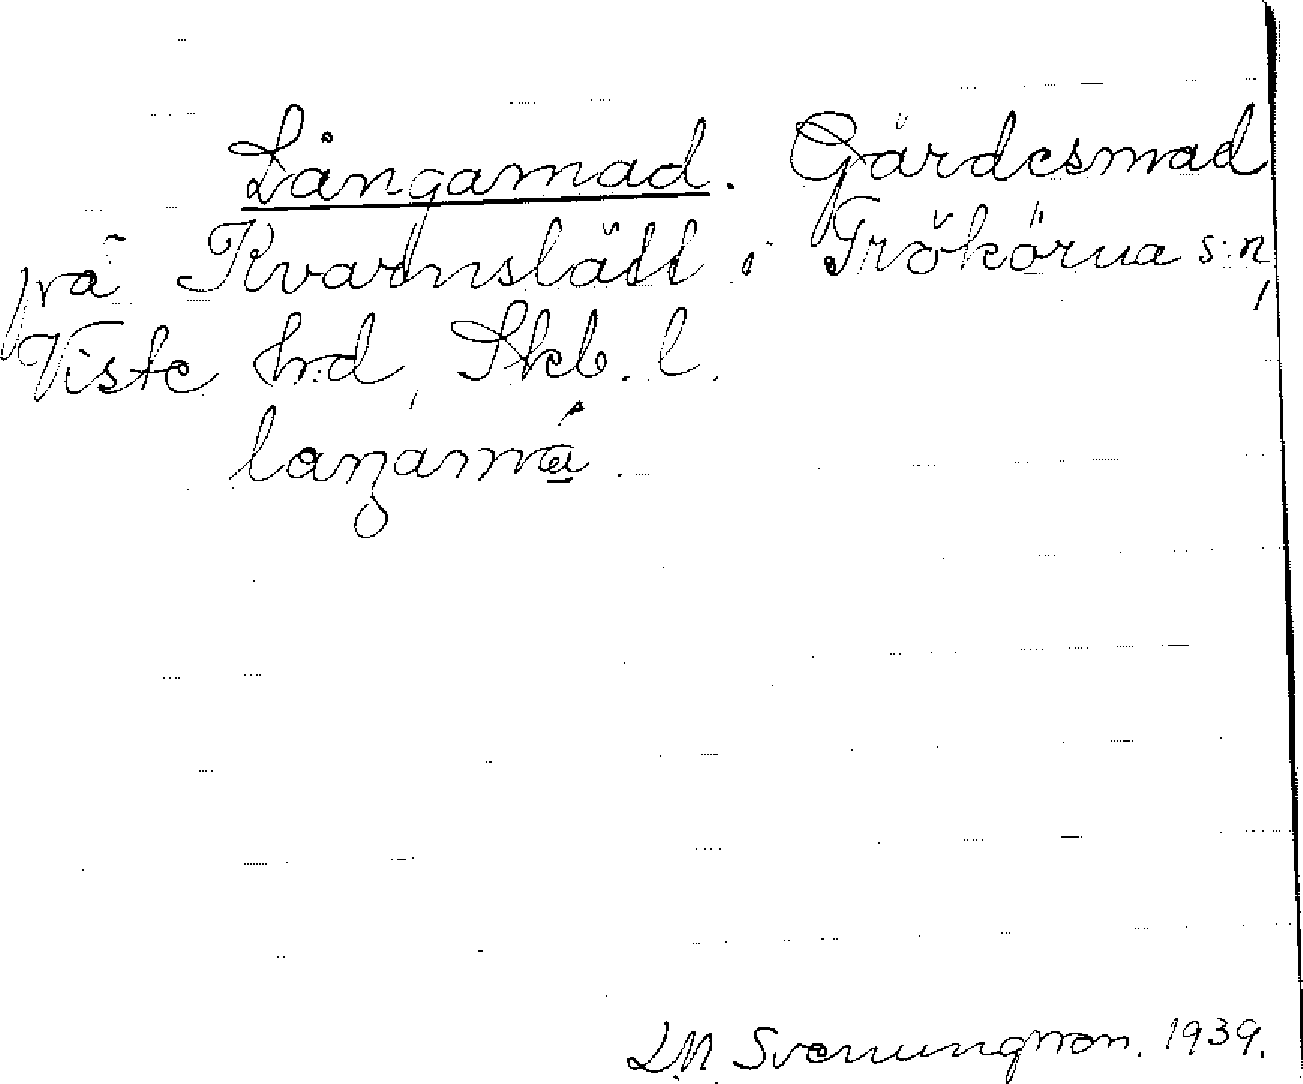 Långamad. Gärdesmad
på Kvarnslätt i Trökörna s:n,
Viste h:d, Skb. l.
laŋamá.
L.M. Svenungsson. 1939.